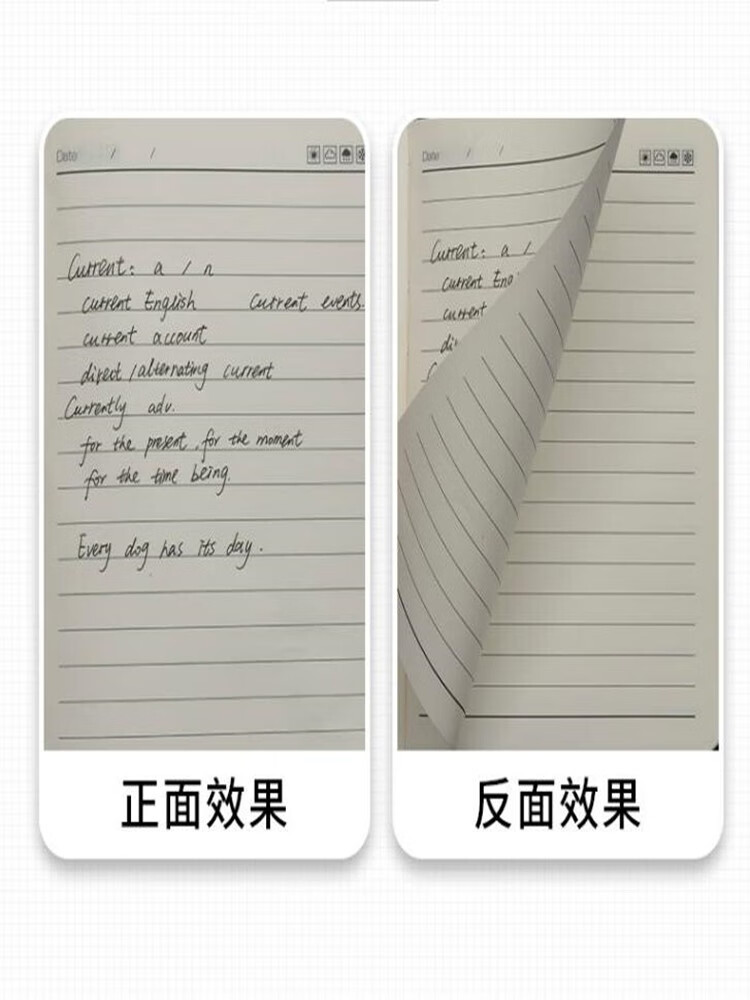 Date / /
Current: a / n
current English current events
current account
direct / alternating current
Currently adv.
for the present, for the moment
for the time being.
Every dog has its day.
正面效果
Date / /
Current: a /
current Eng
current
di
反面效果